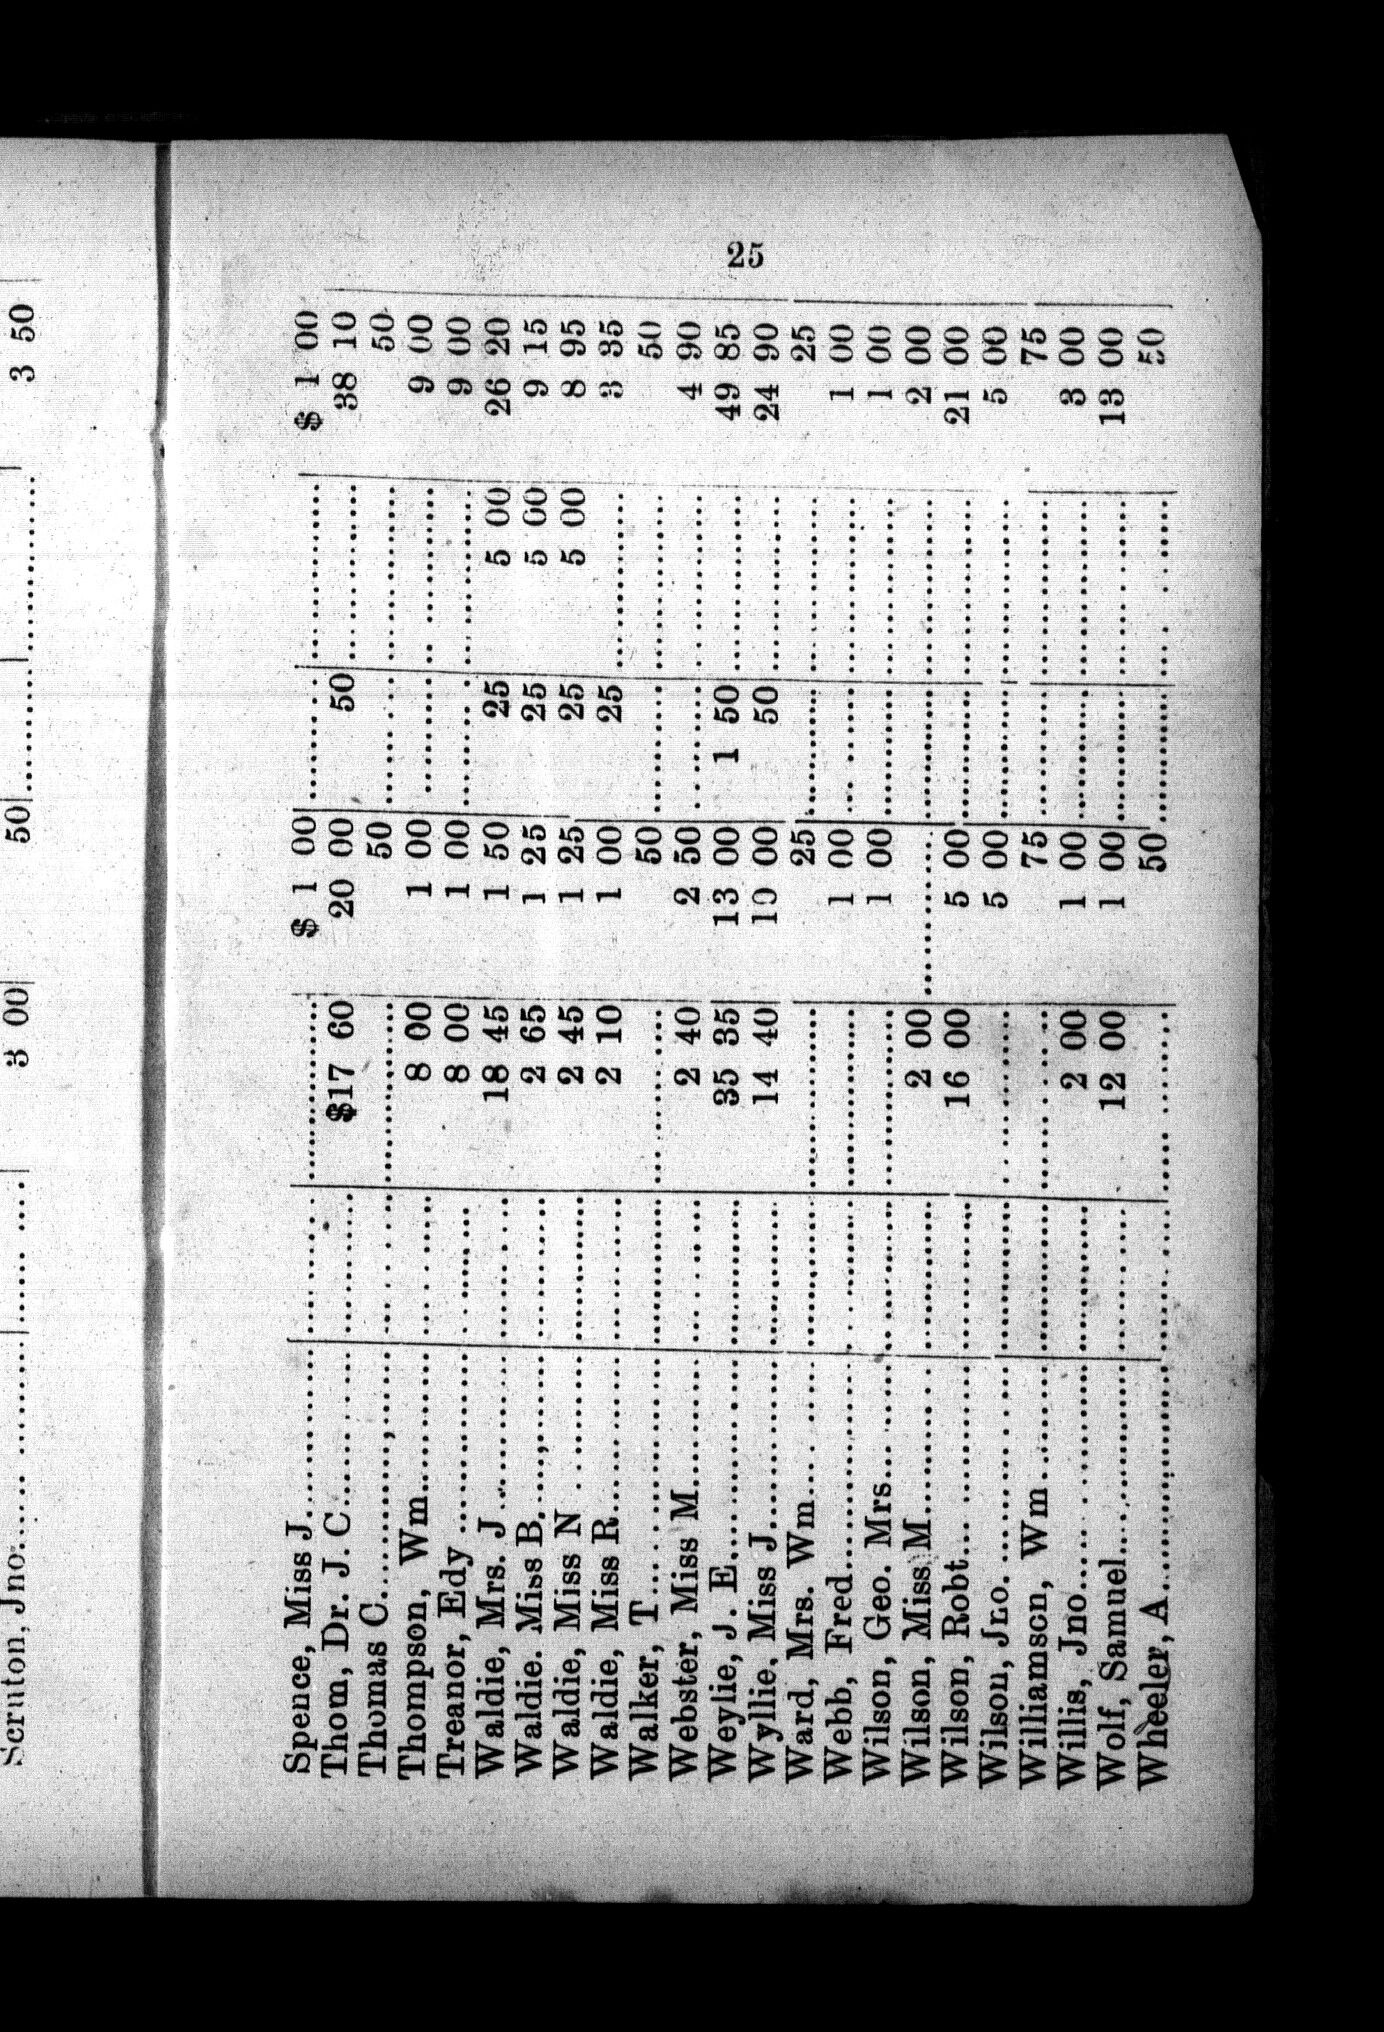 Scruton, Jno 3 00 50 3 50
25
Spence, Miss J $ 1 00 $ 1 00
Thom, Dr. J. C. $17 60 20 00 50 38 10
Thomas C. 50 50
Thompson, Wm 8 00 1 00 9 00
Treanor, Edy 8 00 1 00 9 00
Waldie, Mrs. J 18 45 1 50 25 5 00 26 20
Waldie. Miss B. 2 65 1 25 25 5 00 9 15
Waldie, Miss N 2 45 1 25 25 5 00 8 95
Waldie, Miss R 2 10 1 00 25 3 35
Walker, T 50 50
Webster, Miss M 2 40 2 50 4 90
Weylie, J. E. 35 35 13 00 1 50 49 85
Wyllie. Miss J 14 40 10 00 50 24 90
Ward, Mrs. Wm 25 25
Webb, Fred 1 00 1 00
Wilson, Geo. Mrs 1 00 1 00
Wilson, Miss M 2 00 2 00
Wilson, Robt 16 00 5 00 21 00
Wilson, Jno. 5 00 5 00
Williamson, Wm 75 75
Willis, Jno 2 00 1 00 3 00
Wolf, Samuel 12 00 1 00 13 00
Wheeler, A 50 50